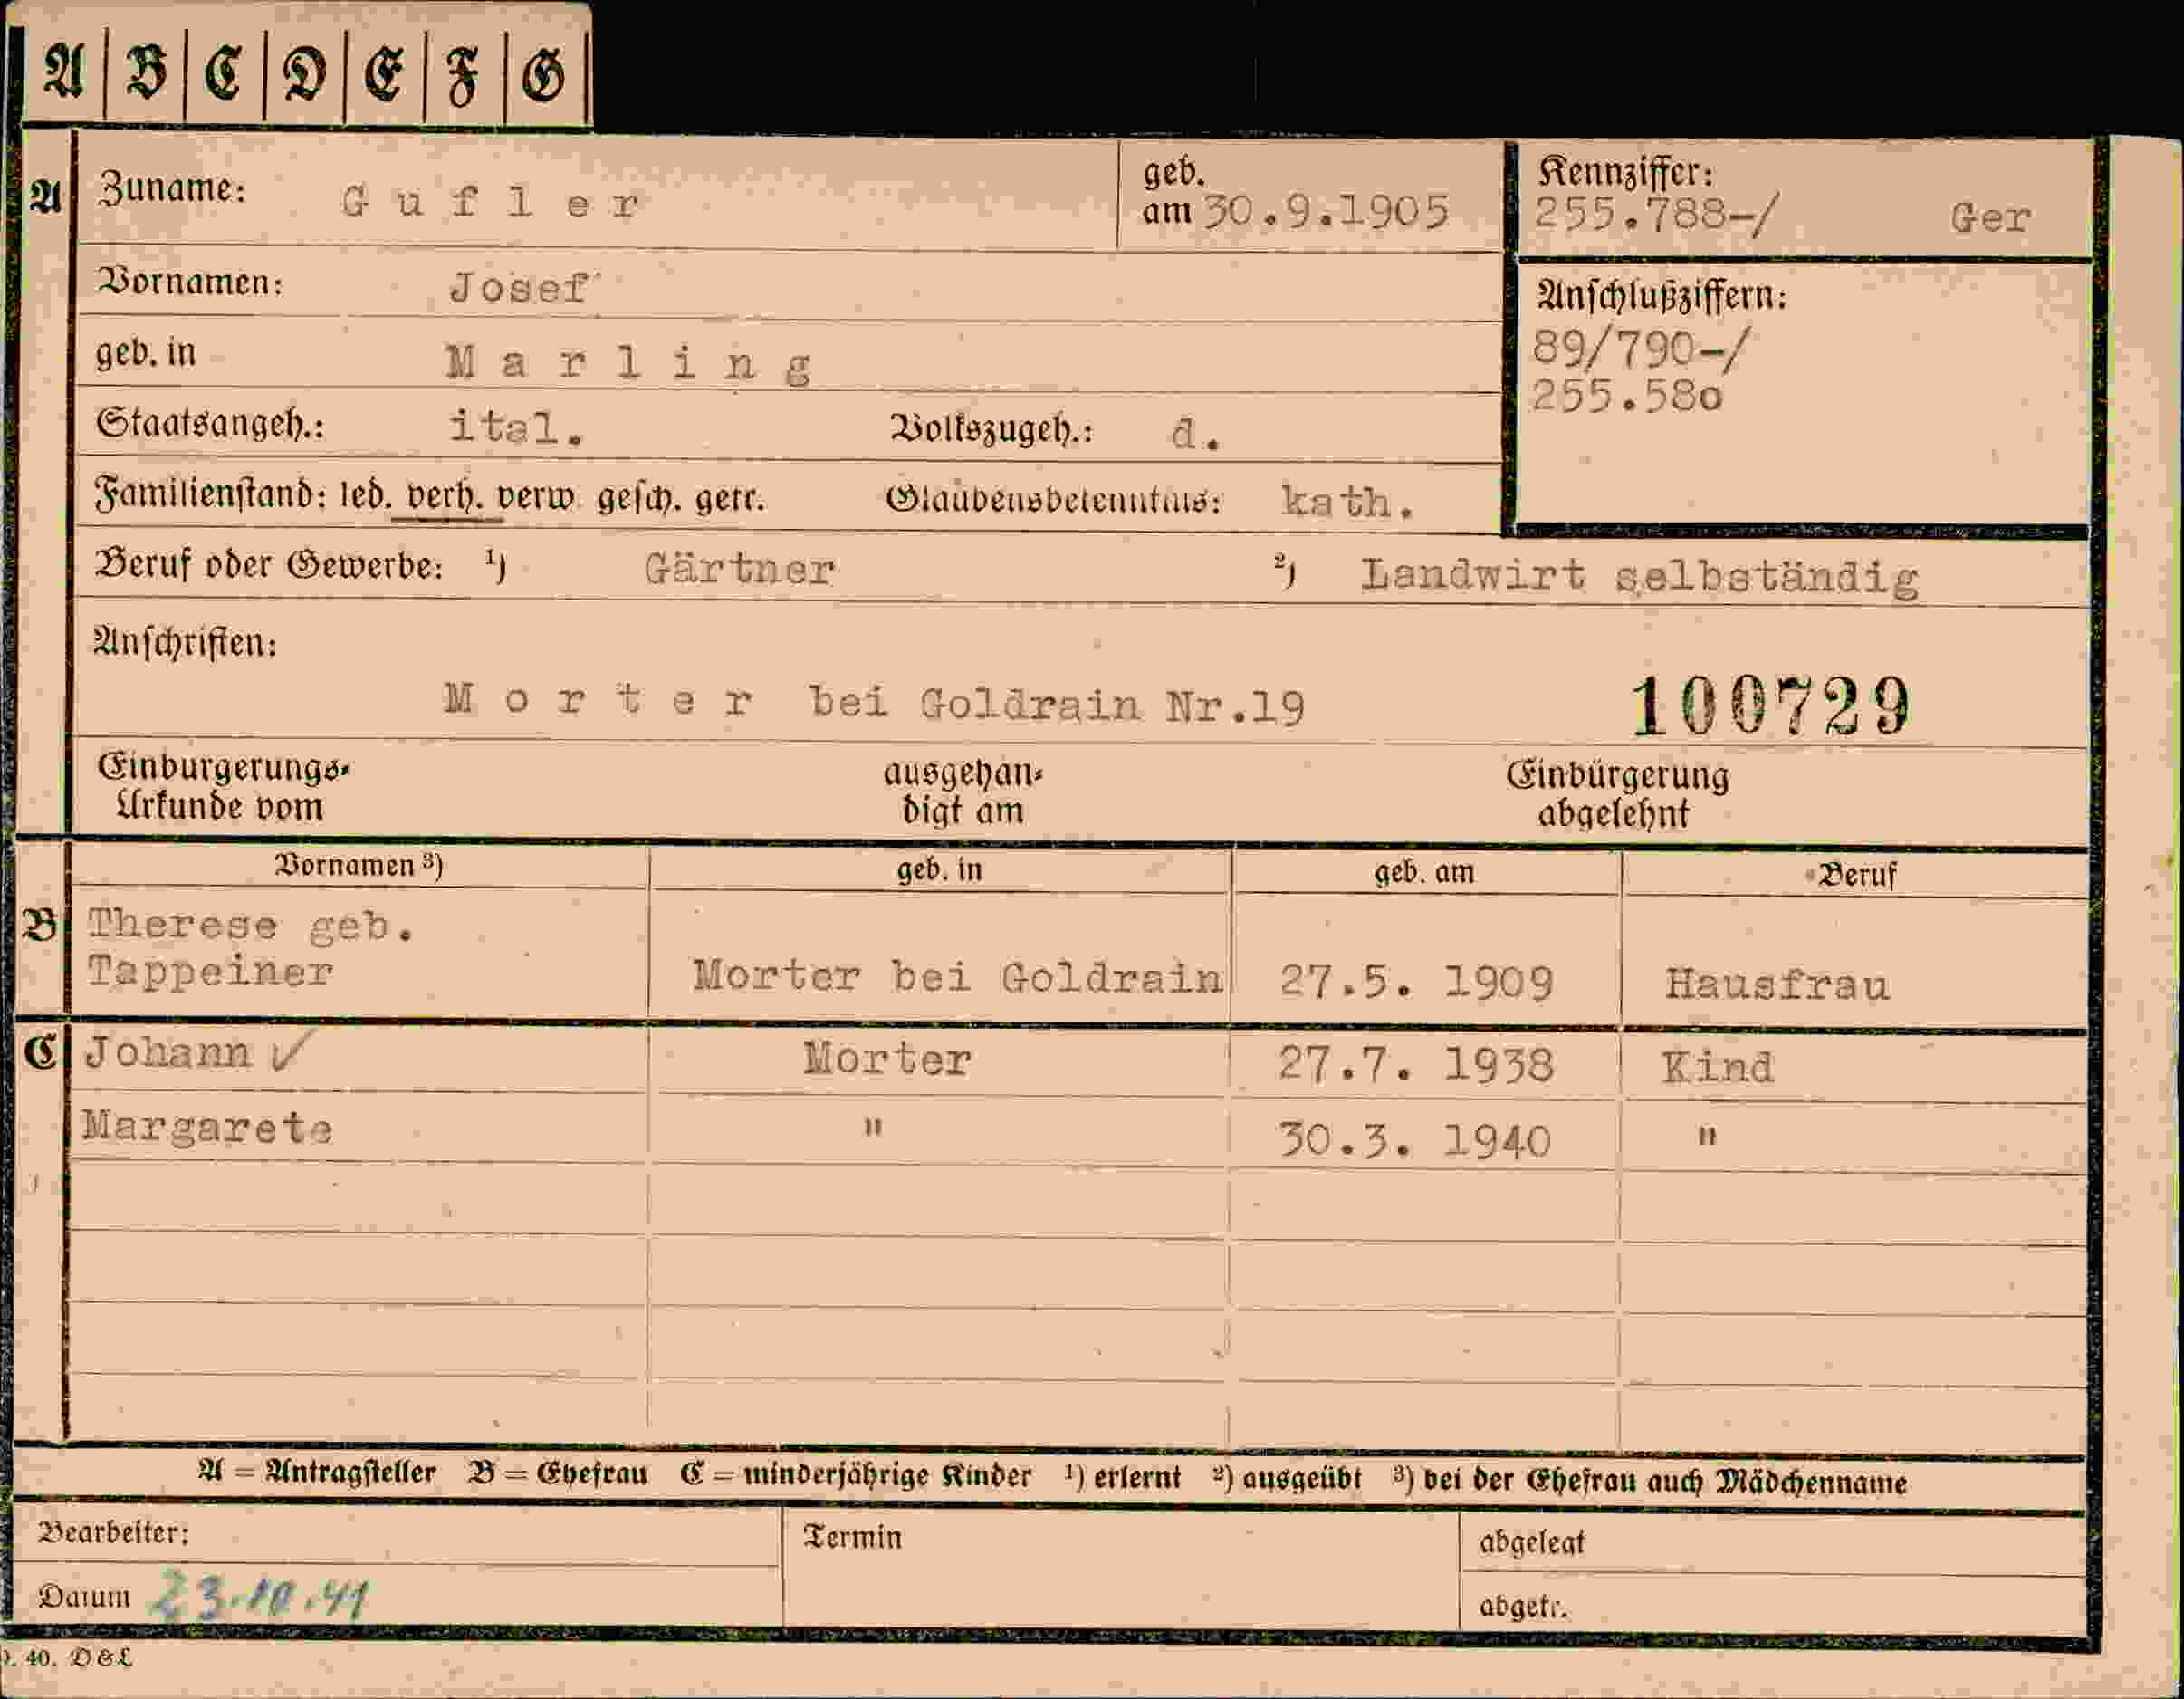 A B C D E F G
A Zuname: Gufler geb. am 30.9.1905 Kennziffer: 255.788-/ Ger
Vornamen: Josef
Anschlußziffern:
geb. in Marling 89/790-/
255.580
Staatsangeh.: ital. Volkszugeh.: d.
Familienstand: led. verh. verw. gesch. getr. Glaubensbekenntnis: kath.
Beruf oder Gewerbe: ¹) Gärtner ²) Landwirt selbständig
Anschriften:
Morter bei Goldrain Nr.19 100729
Einbürgerungs- ausgehän- Einbürgerung
Urkunde vom digt am abgelehnt
Vornamen ³) geb. in geb. am Beruf
B Therese geb.
Tappeiner Morter bei Goldrain 27.5. 1909 Hausfrau
C Johann ✓ Morter 27.7. 1938 Kind
Margarete " 30.3. 1940 "
A = Antragsteller B = Ehefrau C = minderjährige Kinder ¹) erlernt ²) ausgeübt ³) bei der Ehefrau auch Mädchenname
Bearbeiter: Termin abgelegt
Datum 23.10.41 abgetr.
40. D&L